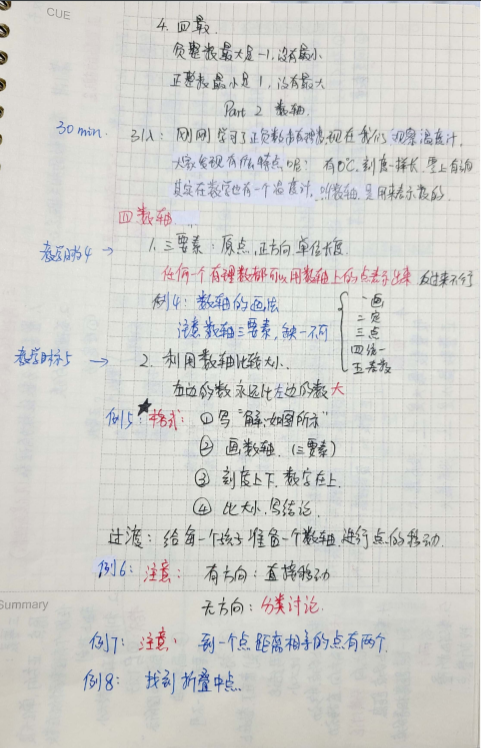 CUE
4. 四最.
负整数最大是-1.没有最小
正整数最小是1.没有最大
Part 2 数轴.
30 min. 引入: 刚刚学习了正负数和有理数,现在我们观察温度计.
大家发现有什么特点呢? 有0℃.刻度一样长.零上有
其实在数学也有一个温度计.叫数轴.是用来表示数的.
四 数轴
教学目标4 → 1. 三要素: 原点.正方向.单位长度.
任何一个有理数都可以用数轴上的点表示出来 反过来不行
例4: 数轴的画法 { 一画
二定
注意数轴三要素,缺一不可 三点
四统一
教学目标5 → 2. 利用数轴比较大小. 五表数
右边的数永远比左边的数大
例5: ★格式: ① 写"解:如图所示"
② 画数轴. (三要素)
③ 刻度上下.数字在上.
④ 比大小.写结论.
过渡: 给每一个孩子准备一个数轴.进行点的移动.
例6: 注意: 有方向: 直接移动
Summary
无方向: 分类讨论.
例7: 注意: 到一个点距离相等的点有两个.
例8: 找到折叠中点.